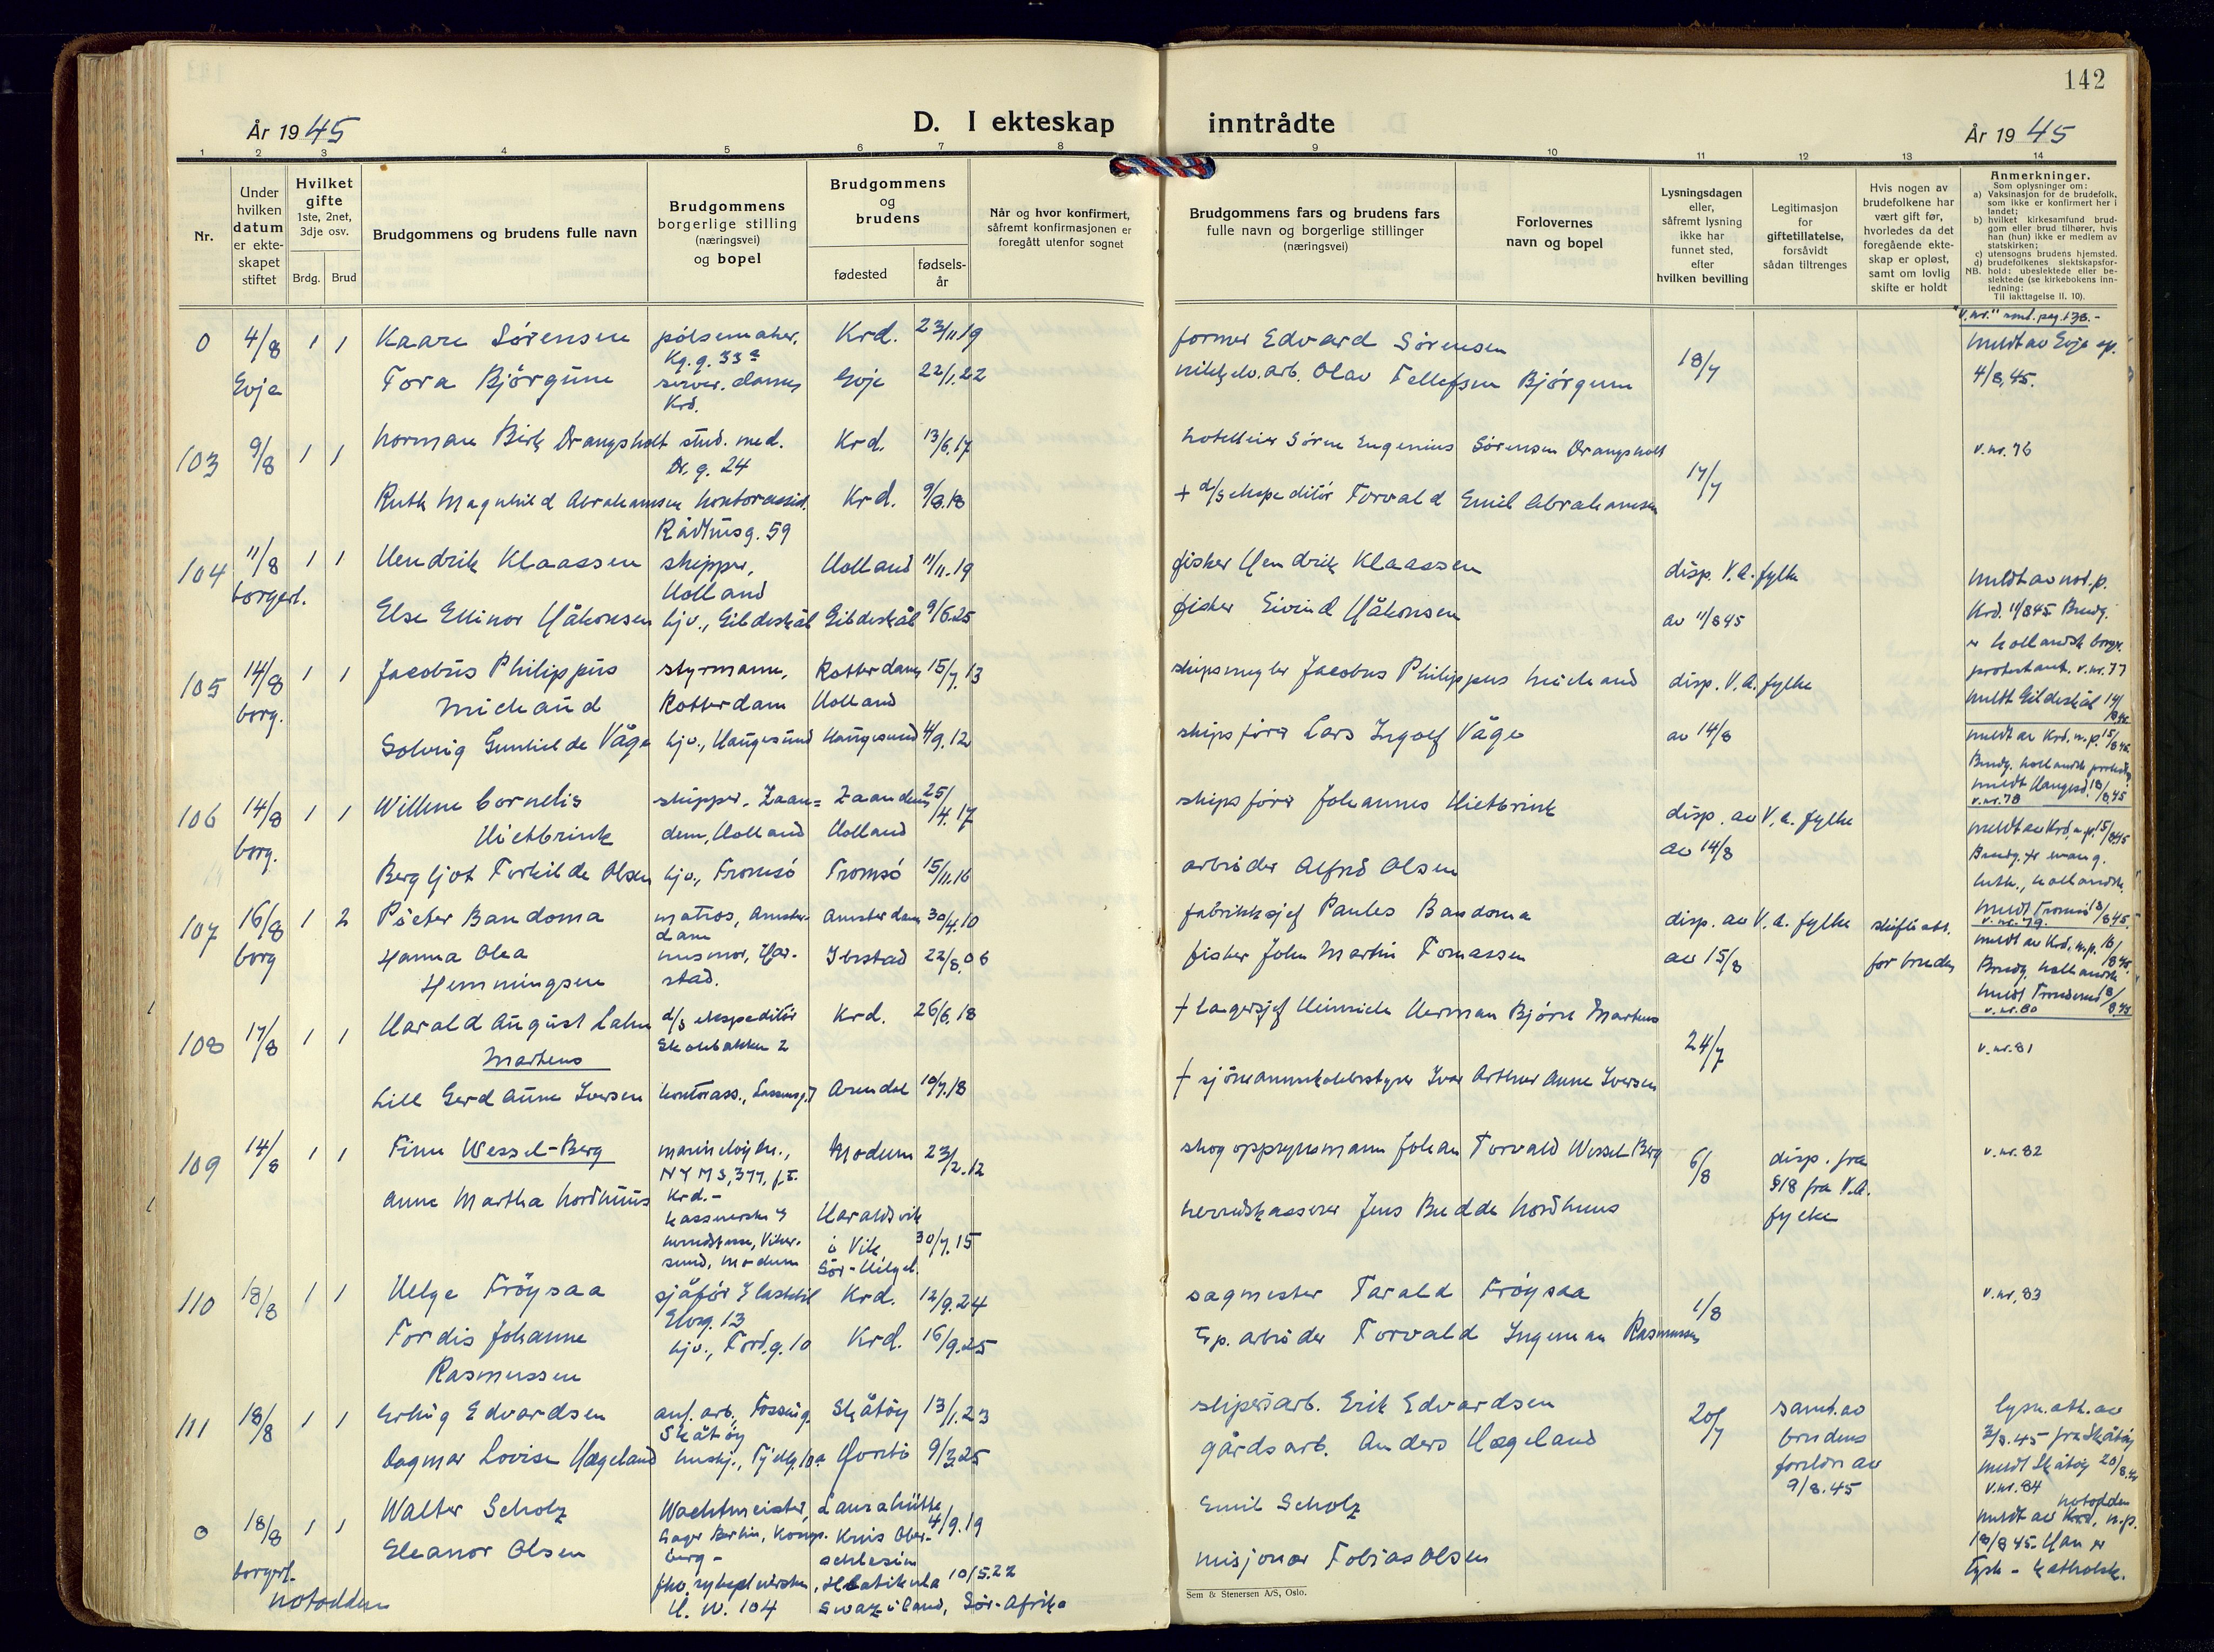 142
År 1945
D. I ekteskap inntrådte
År 1945
1 2 3 4 5 6 7 8 9 10 11 12 13 14
Nr.
Under hvilken datum er ekteskapet stiftet
Hvilket gifte
1ste, 2net, 3dje osv.
Brdg. Brud
Brudgommens og brudens fulle navn
Brudgommens borgerlige stilling (næringsvei) og bopel
Brudgommens og brudens
fødested
fødselsår
Når og hvor konfirmert, såfremt konfirmasjonen er foregått utenfor sognet
Brudgommens fars og brudens fars fulle navn og borgerlige stillinger (næringsvei)
Forlovernes navn og bopel
Lysningsdagen eller, såfremt lysning ikke har funnet sted, efter hvilken bevilling
Legitimasjon for giftetillatelse, forsåvidt sådan tiltrenges
Hvis nogen av brudefolkene har vært gift før, hvorledes da det foregående ekteskap er opløst, samt om lovlig skifte er holdt
Anmerkninger.
Som oplysninger om:
a) Vaksinasjon for de brudefolk, som ikke er konfirmert her i landet;
b) hvilket kirkesamfund brudgom eller brud tilhører, hvis han (hun) ikke er medlem av statskirken;
c) utensogns brudens hjemsted.
d) brudefolkenes slektskapsforhold: ubeslektede eller beslektede (se kirkebokens innledning:
NB. Til iakttagelse II. 10).
0 4/8 1 1 Kaare Sørensen pølsemaker, Krd. 23/11.19 former Edvard Sørensen 18/7 meldt av Evje sp.
Evje Kg. g. 33a
Tora Bjørgum server. dame, Evje 22/1.22 Olav Tellefsen Bjørgum 4/8.45.
Krd.
103 9/8 1 1 Norman Birk Drangsholt stud. med. Krd. 13/6.17 hotelleier Søren Eugenius Sørensen Drangsholt 17/7 v.nr. 76
Dr. g. 24
Ruth Magnhild Abrahamsen kontorassist. Krd. 9/8.18 + d/s ekspeditør Torvald Emil Abrahamsen
Rådhusg. 59
104 11/8 1 1 Hendrik Klaassen skipper, Holland 11/11.19 fisker Hendrik Klaassen disp. V.A. fylke meldt av not.p.
borgerl. Holland Krd. 11/8 45. Brudg.
Else Ellinor Håkonsen hjv., Gildeskål Gildeskål 9/6.25 fisker Eivind Håkonsen av 11/8 45 er hollandsk borger
protestant. v.nr. 77
105 14/8 1 1 Jacobus Philippus styrmann, Rotterdam 15/7.13 skipsmegler Jacobus Philippus Michaud disp. V.A. fylke meldt Gildeskål 14/8 45
borg. Michaud Rotterdam Holland
Solveig Gunhilde Våge hjv., Haugesund Haugesund 4/9.12 skipsfører Lars Ingolf Våge av 14/8 meldt av Krd. n.p. 15/8 45.
Brudg. hollandsk
meldt Haugesd. 18/8.45
v.nr. 78
106 14/8 1 1 Willem Cornelis skipper, Zaan= Zaandem 25/4.17 skipsfører Johannes Hietbrink disp. av V.A. fylke meldt av Krd. n.p. 15/8 45
borg. Hietbrink dem, Holland Holland av 14/8 Brudg. er evang.
Bergljot Torhilde Olsen hjv., Tromsø Tromsø 15/11.16 arbeider Alfred Olsen luth., hollandsk.
meldt Tromsø 18/8 45.
v.nr. 79.
107 16/8 1 2 Pieter Bandoma matros, Amster- Amsterdam 30/4.10 fabrikksjef Paulus Bandoma disp. av V.A. fylke skifteatt. meldt av Krd. n.p. 16/8 45.
borg dam
Hanna Olea husmor, Har- Ibestad 22/8.06 fisker John Martin Tomassen av 15/8 for bruden Brudg. hollandsk
Hemmingsen stad. v.nr. 80
108 17/8 1 1 Harald August Lahn d/s ekspeditør Krd. 26/6.18 + lagersjef Heinrich Herman Bjørn Martens 24/7 v.nr. 81
Martens Skolebakken 2
Lill Gerd Anne Iversen kontorass., Arendal 10/7.18 + sjømannsskolebestyrer Ivar Arthur Anne Iversen
109 14/8 1 1 Finn Wessel-Berg marineløytn., Modum 23/2.12 skogoppsynsmann Johan Torvald Wessel-Berg 6/8 disp. fra v.nr. 82
NYMS, 377, f.t. §18 fra V.A.
Krd.- fylke
Anne Martha Nordhuus kassererske i Haraldsvik 30/7.15 herredskasserer Jens Budde Nordhuus
herredskasse, Viker- i Vik,
sund, Modum Sør-Helgel.
110 18/8 1 1 Helge Frøysaa sjåfør i lastebil Krd. 12/9.24 sagmester Tarald Frøysaa 1/8 v.nr. 83
Elvg. 13
Tordis Johanne hjv., Tord.g. 10 Krd. 16/9.25 Torvald Ingeman Rasmussen
Rasmussen
111 18/8 1 1 Erling Edvardsen anl. arb., Fossing Skåtøy 13/1.23 sliperiarb. Erik Edvardsen 20/7 samt. av lysn. att. av
Skåtøy brudens 7/8.45 fra Skåtøy
Dagmar Lovise Hægeland hushj., Hornnes 9/3.25 gårdsarb. Anders Hægeland foreldre av meldt Skåtøy 20/8.45
9/8.45 v.nr. 84
0 18/8 1 1 Walter Scholz Wachtmeister, Laurahütte 4/9.19 Emil Scholz meldt av Notodden n.p.
borgerl. Lager Berlin, Kongs- Kreis Ober- 18/8 45. Han er
Notodden berg - schlesien tysk - katholsk.
Eleanor Olsen frk. sykepleierske, Hlatikulu 10/5.22 misjonær Tobias Olsen
H. W. 104 Swaziland, Sør-Afrika
Sem & Stenersen A/S, Oslo.